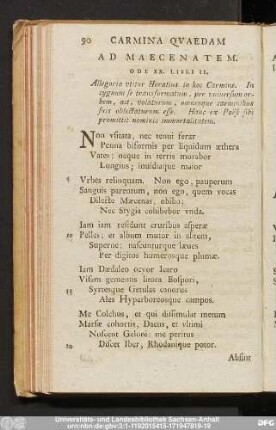 90 CARMINA QVAEDAM
AD MAECENATEM.
ODE XX. LIBRI II.
Allegoria vtitur Horatius in hoc Carmine. In
cygnum se transformatum, per vniuersum or-
bem, ait, volaturum, omnesque carminibus
suis oblectaturum esse. Hanc ex Poësi sibi
promittit nominis immortalitatem.
Non vsitata, nec tenui ferar
Penna biformis per liquidum aethera
Vates: neque in terris morabor
Longius; inuidiaque maior
5 Vrbes relinquam. Non ego, pauperum
Sanguis parentum, non ego, quem vocas
Dilecte Maecenas, obibo,
Nec Stygia cohibebor vnda.
Iam iam residunt cruribus asperae
10 Pelles; et album mutor in alitem,
Superne: nascunturque laeues
Per digitos humerosque plumae.
Iam Daedaleo ocyor Icaro
Visam gementis litora Bospori,
15 Syrtesque Getulas canorus
Ales Hyperboreosque campos.
Me Colchus, et qui dissimulat metum
Marsae cohortis, Dacus, et vltimi
Noscent Geloni: me peritus
20 Discet Iber, Rhodanique potor.
Absint
Universitäts- und Landesbibliothek Sachsen-Anhalt
urn:nbn:de:gbv:3:1-1192015415-171947819-19
DFG